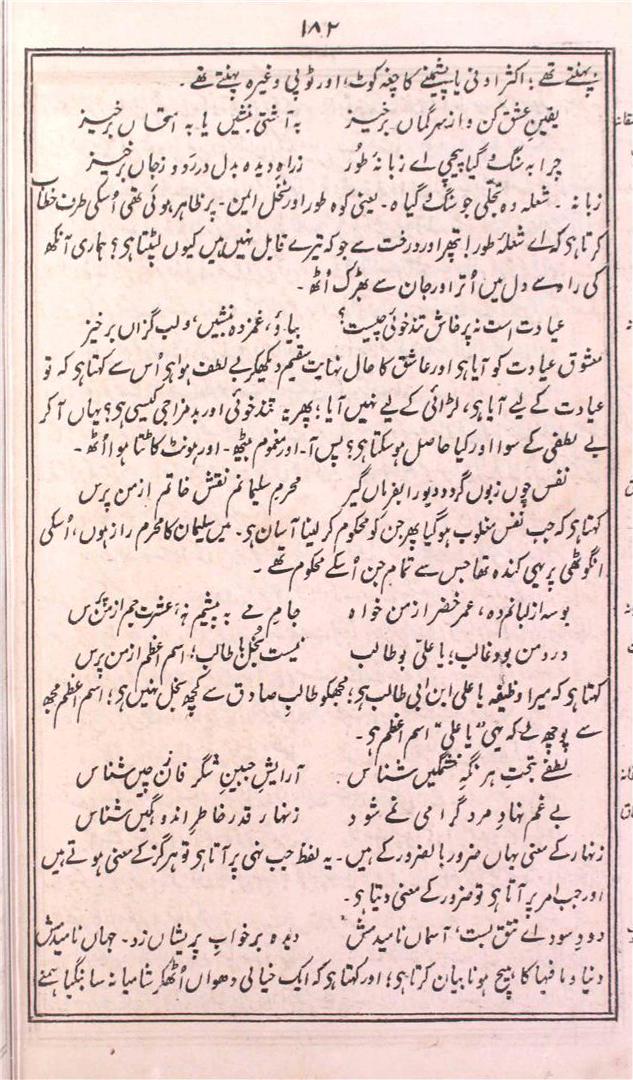 ۱۸۲
نہ پہنتے تھے؛ اکثر اونی یا پشمینے کا چغہ کوٹ، اور ٹوپی وغیرہ پہنتے تھے۔
یقینِ عشق کن و از سرِ گماں برخیز بہ آشتی بنشیں یا بہ امتحاں برخیز
چرا بہ سنگ و گیا پیچی اے زبانۂ طور زراہِ دیدہ بدل در رَو و زجاں برخیز
زبانہ۔ شعلہ وہ تجلی جو سنگ و گیاہ۔ یعنی کوہ طور اور نخلِ ایمن۔ پر ظاہر ہوئی تھی اُسکی طرف خطاب
کرتا ہی کہ اے شعلۂ طور! پتھر اور درخت سے جو کہ تیرے قابل نہیں ہیں کیوں لپٹتا ہی؟ ہماری آنکھ
کی راہ سے دل میں اُتر اور جان سے بھڑک اُٹھ۔
عیادت است نہ پرخاش تندخوئی چیست؟ بیا و، غمزدہ بنشیں، و لب گزاں برخیز
معشوق عیادت کو آیا ہی اور عاشق کا حال نہایت سقیم دیکھکر بے لطف ہوا ہی اُس سے کہتا ہی کہ تو
عیادت کے لیے آیا ہی، لڑائی کے لیے نہیں آیا؛ پھر یہ تندخوئی اور بدمزاجی کیسی ہی؟ یہاں آ کر
بے لطفی کے سوا اور کیا حاصل ہو سکتا ہی؟ پس آ۔ اور مغموم بیٹھ۔ اور ہونٹ کاٹتا ہوا اُٹھ۔
نفس چوں زبوں گردد دیو را بفرماں گیر محرمِ سلیمانم نقشِ خاتم از من پرس
کہتا ہی کہ جب نفس مغلوب ہو گیا پھر جن کو محکوم کر لینا آسان ہی۔ میں سلیمان کا محرم راز ہوں، اُسکی
انگوٹھی پر یہی کندہ تھا جس سے تمام جن اُسکے محکوم تھے۔
بوسہ از لبانم دہ، عمرِ خضر از من خواہ جامِ مے بہ پیشم نہ، عشرتِ جم از من پرس
وردِ من بود غالب؛ یا علیِ بو طالب نیست بخل با طالب؛ اسمِ اعظم از من پرس
کہتا ہی کہ میرا وظیفہ یا علی ابن ابی طالب ہی؛ مجھکو طالبِ صادق سے کچھ بخل نہیں ہی؛ اسم اعظم مجھ
سے پوچھ لے کہ یہی "یا علی" اسم اعظم ہی۔
لطفے بتحتِ ہر نگہِ خشمگیں شناس آرایشِ جبینِ شگرفاں زچیں شناس
بے غم نہادِ مرد گرامی نمے شود زنہار قدرِ خاطرِ اندوہگیں شناس
زنہار کے معنی یہاں ضرور بالضرور کے ہیں۔ یہ لفظ جب نہی پر آتا ہی تو ہرگز کے معنی ہوتے ہیں
اور جب امر پر آتا ہی تو ضرور کے معنی دیتا ہی۔
دودِ سودائے تتق بست، آسماں نامیدمش دیدہ بر خوابِ پریشاں زد۔ جہاں نامیدمش
دنیا و ما فیہا کا ہیچ ہونا بیان کرتا ہی؛ اور کہتا ہی کہ ایک خیالی دھواں اُٹھکر شامیانہ سا بنگیا ہمنے